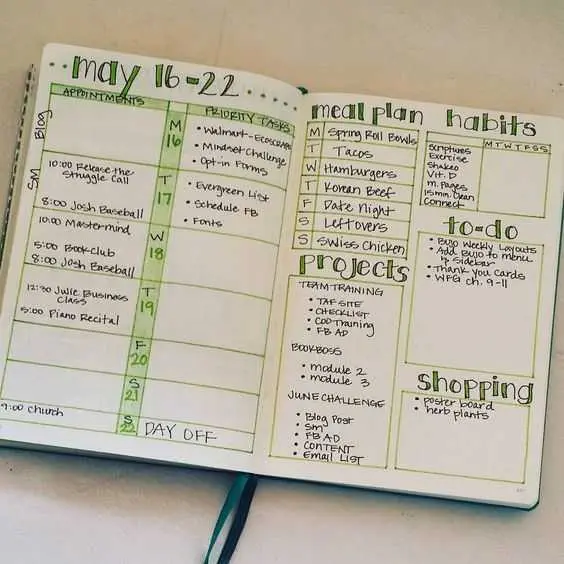 may 16-22
APPOINTMENTS
PRIORITY TASKS
Blog
M
16
• Walmart-Ecoscraps
• Mindset Challenge
• Opt-in Forms
SM
10:00 Release the
Struggle Call
8:00 Josh Baseball
T
17
• Evergreen List
• Schedule FB
• Fonts
10:00 Mastermind
5:00 Bookclub
8:00 Josh Baseball
W
18
12:30 Julie Business
Class
5:00 Piano Recital
T
19
F
20
S
21
9:00 Church
S
22
DAY OFF
meal plan
M Spring Roll Bowls
T Tacos
W Hamburgers
T Korean Beef
F Date Night
S Leftovers
S Swiss Chicken
habits
M T W T F S S
Scriptures
Exercise
Shakeo
Vit. D
m. Pages
15 mn. Clean
Connect
projects
TEAM TRAINING
• TAF SITE
• CHECKLIST
• COD Training
• FB AD
BOOKBOSS
• module 2
• module 3
JUNE CHALLENGE
• Blog Post
• SM
• FB AD
• CONTENT
• Email LIST
to-do
• BUJO Weekly Layouts
• Add BUJO to menu
& Sidebar
• Thank you Cards
• WFG ch. 9-11
shopping
• poster board
• herb plants